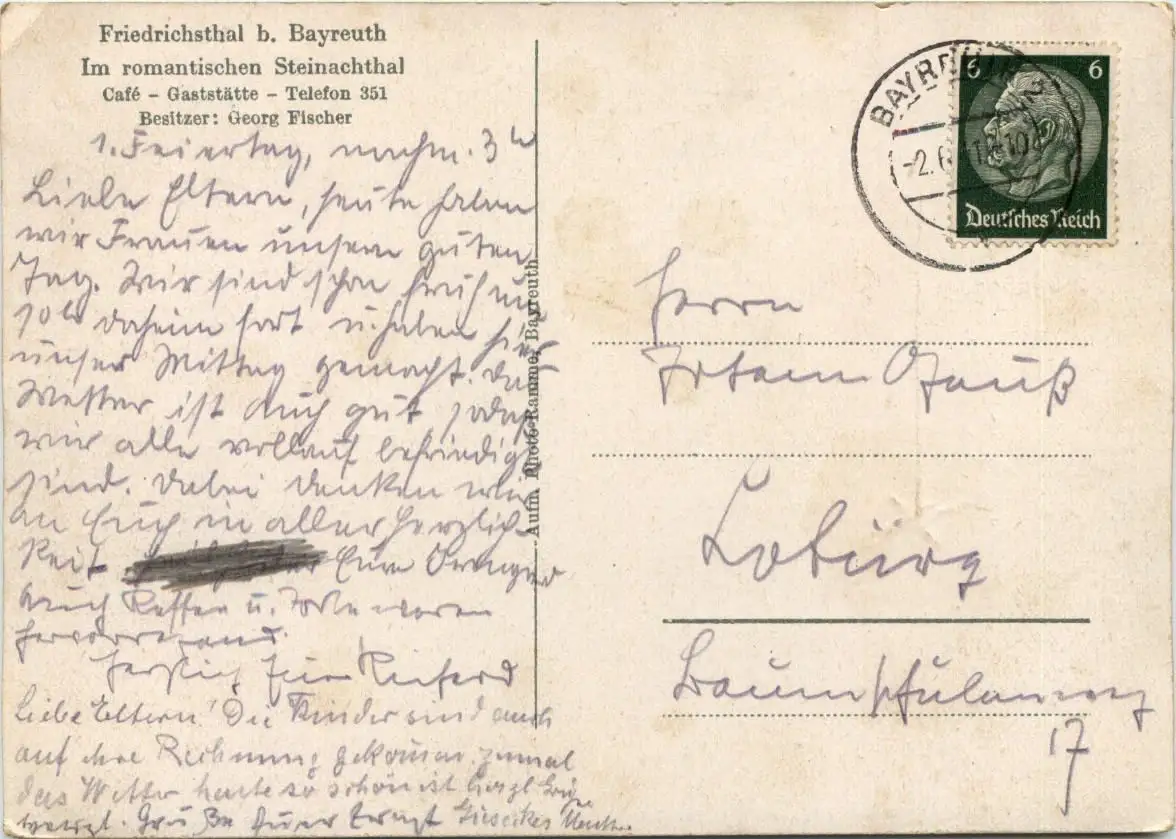 Friedrichsthal b. Bayreuth
Im romantischen Steinachthal
Café – Gaststätte – Telefon 351
Besitzer: Georg Fischer
1. Feiertag, nachm. 3 h
Liebe Eltern, heute haben
wir Frauen unseren guten
Tag. Wir sind schon früh um
10 h daheim fort u. haben hier
unser Mittag gemacht. Das
Wetter ist auch gut sodaß
wir alle vollauf befriedigt
sind. Dabei denken wir
an Euch in aller Herzlich-
keit Eure
auch u. waren
hervorragend.
Herzlich Euer
Liebe Eltern! Die Kinder sind auch
auf ihre Rechnung gekommen, zumal
das Wetter heute so schön ist herzl
Grüße
Aufn. Photo-Ramme, Bayreuth
BAYREUTH 2
-2.6. 10
6 6
Deutsches Reich
Herrn
Gauß
Coburg
Baumschulenweg
17